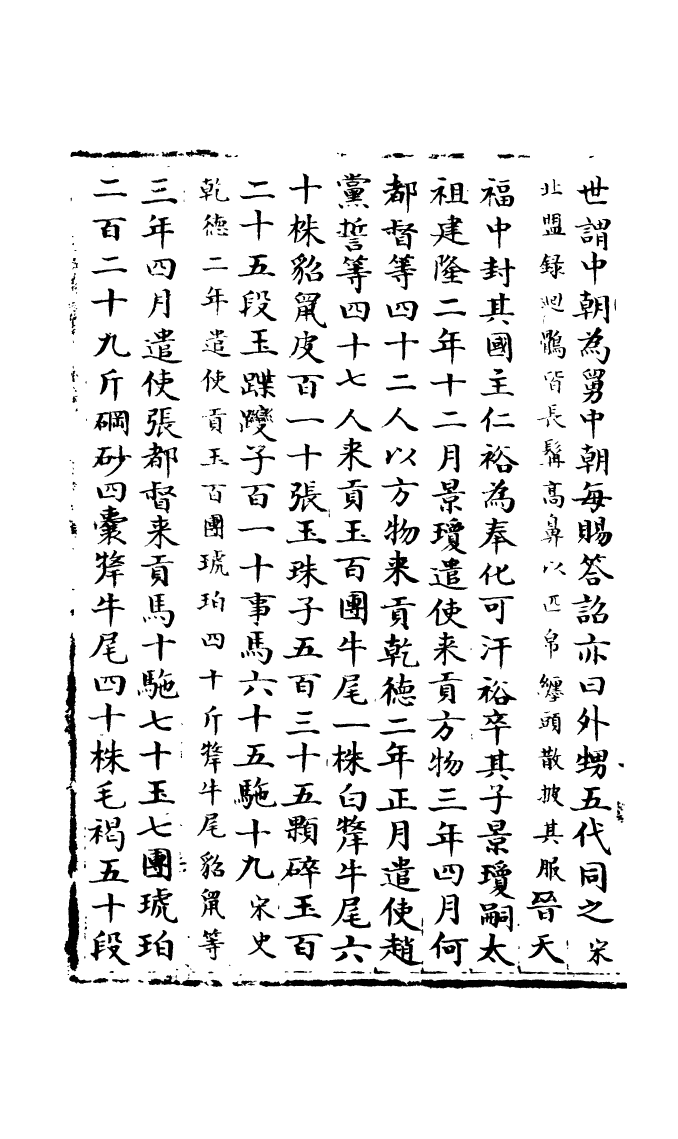 世謂中朝為舅中朝每賜答詔亦曰外甥五代同之宋
北盟録廻鶻皆長髯高鼻以匹帛纏頭散披其服晉天
福中封其國主仁裕為奉化可汗裕卒其子景瓊嗣太
祖建隆二年十二月景瓊遣使来貢方物三年四月何
都督等四十二人以方物来貢乾德二年正月遣使趙
黨誓等四十七人来貢玉百團牛尾一株白犛牛尾六
十株貂鼠皮百一十張玉珠子五百三十五顆碎玉百
二十五段玉蹀躞子百一十事馬六十五駞十九宋史
乾德二年遣使貢玉百團琥珀四十斤犛牛尾貂鼠等
三年四月遣使張都督来貢馬十駞七十玉七團琥珀
二百二十九斤碙砂四囊犛牛尾四十株毛褐五十段